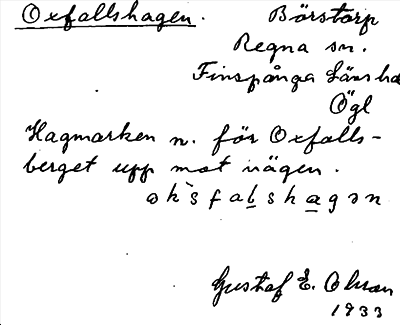 Oxfallshagen. Börstorp
Regna sn.
Finspånga Läns hd
Ögl
Hagmarken n. för Oxfalls-
berget upp mot vägen.
ok`sfalshagən
Gustaf E. Ohman
1933